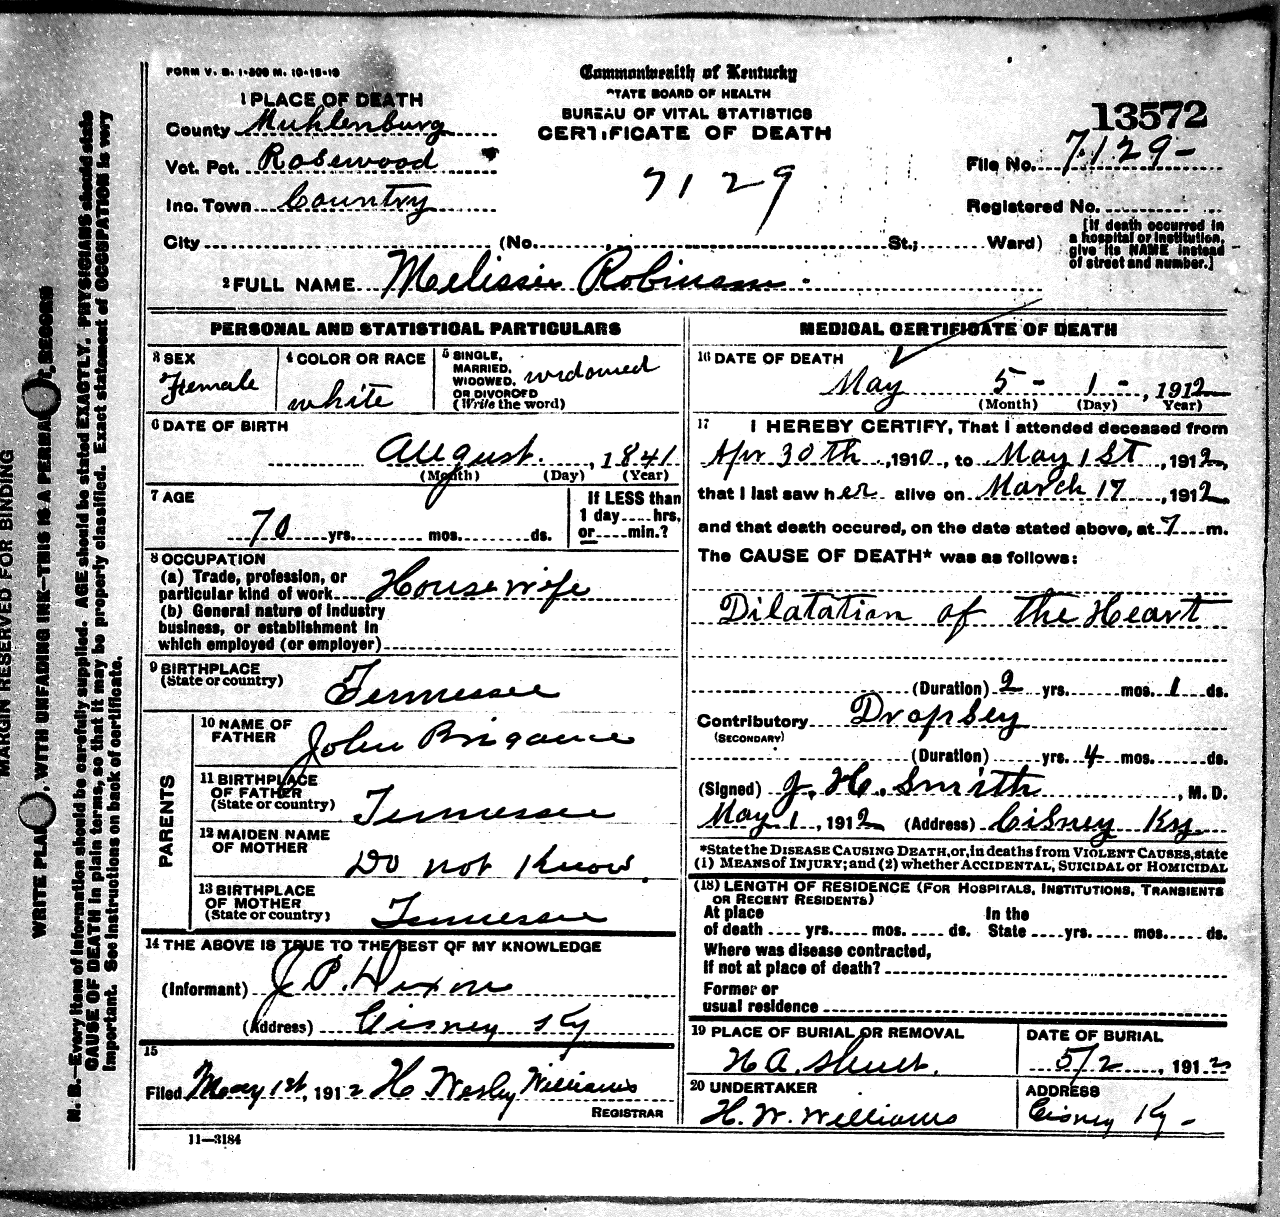 FORM V. S. 1-300 M. 10-13-10
Commonwealth of Kentucky
STATE BOARD OF HEALTH
BUREAU OF VITAL STATISTICS
CERTIFICATE OF DEATH
13572
1 PLACE OF DEATH
County Muhlenburg
Vot. Pct. Rosewood
Inc. Town Country
7129
File No. 7129-
Registered No.
City (No. St.; Ward)
[If death occurred in a hospital or institution, give its NAME instead of street and number.]
2 FULL NAME Melissie Robinson
PERSONAL AND STATISTICAL PARTICULARS
3 SEX Female
4 COLOR OR RACE white
5 SINGLE, MARRIED, WIDOWED, OR DIVORCED (Write the word) widowed
6 DATE OF BIRTH
August, 1841
(Month) (Day) (Year)
7 AGE
70 yrs. mos. ds.
If LESS than 1 day hrs. or min.?
8 OCCUPATION
(a) Trade, profession, or particular kind of work House wife
(b) General nature of industry business, or establishment in which employed (or employer)
9 BIRTHPLACE (State or country) Tennessee
PARENTS
10 NAME OF FATHER John Brigance
11 BIRTHPLACE OF FATHER (State or country) Tennessee
12 MAIDEN NAME OF MOTHER Do not Know.
13 BIRTHPLACE OF MOTHER (State or country) Tennessee
14 THE ABOVE IS TRUE TO THE BEST OF MY KNOWLEDGE
(Informant) J. P. Dixon
(Address) Cisney Ky
15
Filed May 1st, 1912 H Wesley Williams
REGISTRAR
11—3184
MEDICAL CERTIFICATE OF DEATH
16 DATE OF DEATH
May 5 - 1 -, 1912
(Month) (Day) Year)
17 I HEREBY CERTIFY, That I attended deceased from
Apr 30th, 1910, to May 1st, 1912,
that I last saw her alive on March 17, 1912.
and that death occured, on the date stated above, at 7 m.
The CAUSE OF DEATH* was as follows:
Dilatation of the Heart
(Duration) 2 yrs. mos. 1 ds.
Contributory Dropsey
(SECONDARY)
(Duration) yrs. 4 mos. ds.
(Signed) J. H. Smith, M. D.
May 1, 1912 (Address) Cisney Ky
*State the DISEASE CAUSING DEATH, or, in deaths from VIOLENT CAUSES, state
(1) MEANS of INJURY; and (2) whether ACCIDENTAL, SUICIDAL or HOMICIDAL
(18) LENGTH OF RESIDENCE (FOR HOSPITALS, INSTITUTIONS, TRANSIENTS
OR RECENT RESIDENTS)
At place of death yrs. mos. ds. In the State yrs. mos. ds.
Where was disease contracted,
If not at place of death?
Former or
usual residence
19 PLACE OF BURIAL OR REMOVAL
H A.
DATE OF BURIAL
5/2, 1912
20 UNDERTAKER
H. W. Williams
ADDRESS
Cisney Ky -
MARGIN RESERVED FOR BINDING
WRITE PLAI, WITH UNFADING INK—THIS IS A PERMA T RECORD
N. B.—Every item of information should be carefully supplied. AGE should be stated EXACTLY. PHYSICIANS should state
CAUSE OF DEATH in plain terms, so that it may be properly classified. Exact statement of OCCUPATION is very
important. See instructions on back of certificate.